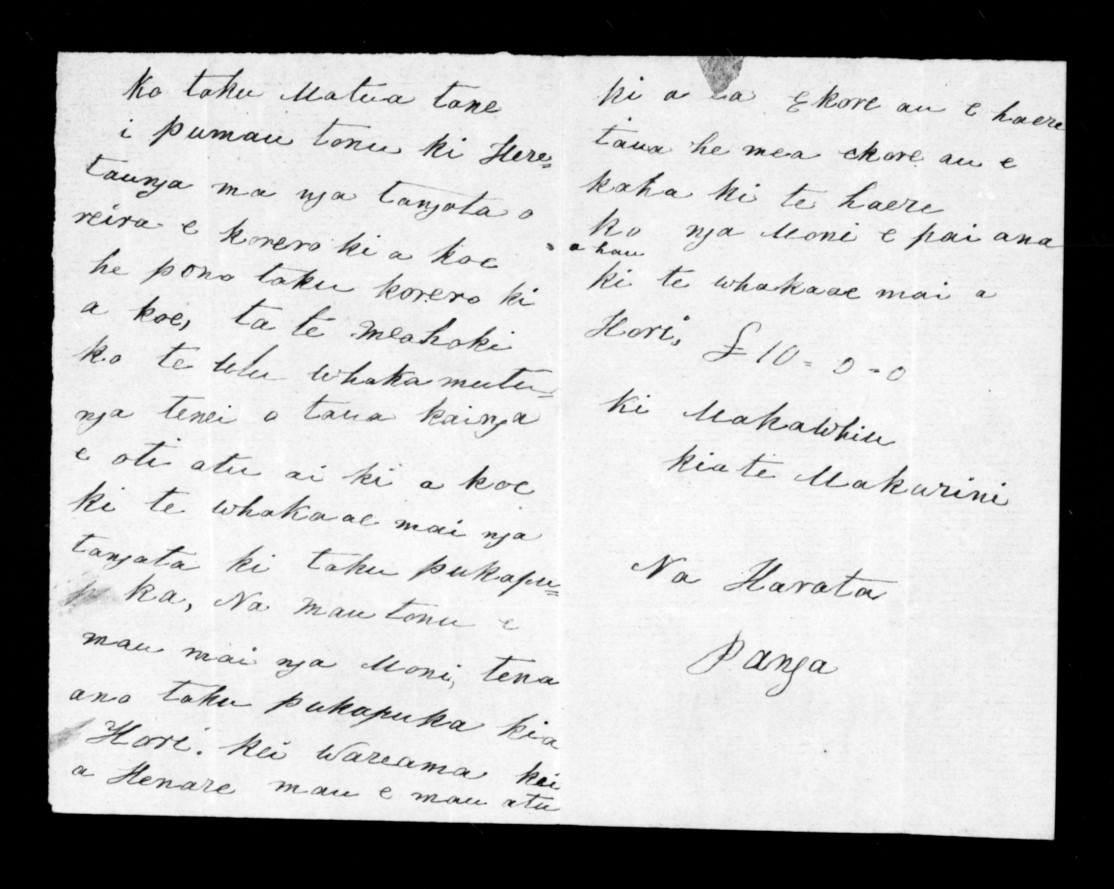 Ko toku Matua tane
i pumau tonu ki Here=
taunga ma nga tangata o
reira e korero ki a koe
he pono taku korero ki
a koe, ta te meahoki
ko te Utu whaka mutu=
nga tenei o taua kainga
e oti atu ai ki a koe
ki te whakaae mai nga
tangata ki taku pukapu=
ka, Na mau tonu e
mau mai nga Moni, tena
ano taku pukapuka kia
Hori. kei Wareama kei
a Henare mau e mau atu
ki a ia Ekore au e haere
taua he mea ekore au e
kaha ki te haere
ko nga Moni e pai ana
ahau
ki te whakaae mai a
Hori, £10=0=0
ki Makawhiu
kiate Makurini
Na Harata
Panga